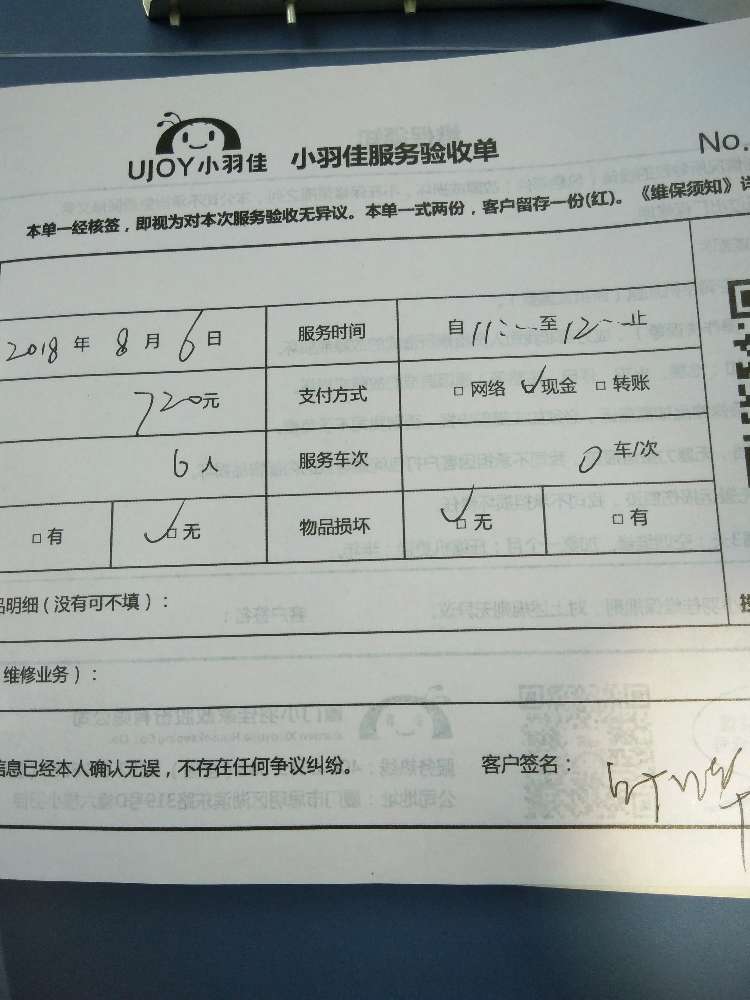 UJOY小羽佳 小羽佳服务验收单 No.
本单一经核签，即视为对本次服务验收无异议。本单一式两份，客户留存一份(红)。《维保须知》详
2018 年 8 月 6 日 服务时间 自 11:-- 至 12:-- 止
720元 支付方式 □ 网络 ✓现金 □ 转账
6 人 服务车次 0 车/次
□ 有 ✓□ 无 物品损坏 ✓□ 无 □ 有
品明细（没有可不填）：
维修业务）：
信息已经本人确认无误，不存在任何争议纠纷。 客户签名：